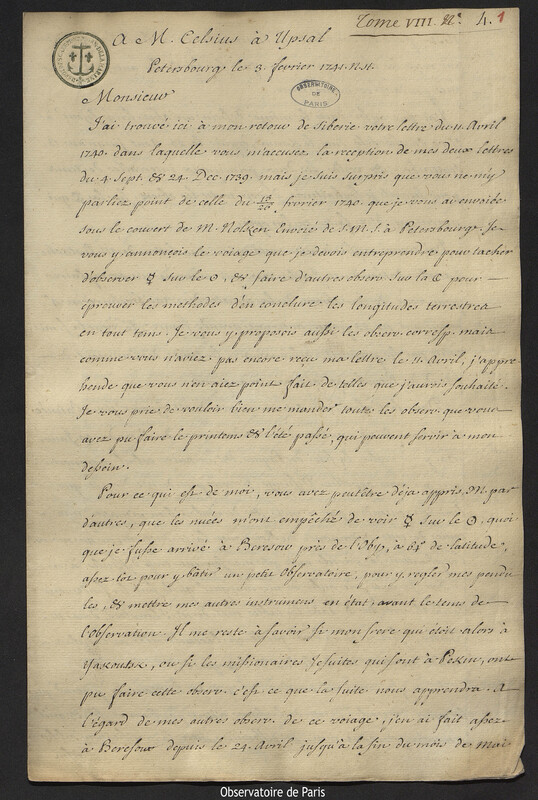 Tome VIII. N.° 4. 1
A M. Celsius à Upsal
Petersbourg le 3. fevrier 1741. N.st.
OBSERVATOIRE DE PARIS
Monsieur
J'ai trouvé ici à mon retour de Siberie votre lettre du 11. Avril
1740. dans laquelle vous m'accusez la reception de mes deux lettres
du 4. Sept. & 24. Dec. 1739. mais je suis surpris que vous ne m'y
parliez point de celle du fevrier 1740. que je vous ai envoiée
sous le couvert de M. Nolken Envoié de S. M. S. à Petersbourg. Je
vous y annonçois le voiage que je devois entreprendre pour tacher
d'observer ☿ sur le ☉, & faire d'autres observ. sur la ☾ pour
éprouver les methodes d'en conclure les longitudes terrestres
en tout tems. Je vous y proposois aussi les observ. corresp. mais
comme vous n'aviez pas encore reçu ma lettre le 11. Avril, j'appre-
hende que vous n'en aiez point fait de telles que j'aurois souhaité.
Je vous prie de vouloir bien me mander toutes les observ. que vous
avez pu faire le printems & l'été passé, qui peuvent servir à mon
dessein.
Pour ce qui est de moi, vous avez peutêtre déja appris, M. par
d'autres, que les nuées m'ont empêché de voir ☿ sur le ☉, quoi
que je fusse arrivé à Beresow près de l'Oby, à de latitude,
assez tôt pour y bâtir un petit Observatoire, pour y regler mes pendu
les, & mettre mes autres instrumens en état, avant le tems de
l'observation. Il me reste à savoir si mon frere qui étoit alors à
Yakoutsk, ou si les missionaires Jesuites qui sont à Pekin, ont
pu faire cette observ. c'est ce que la suite nous apprendra. A
l'égard de mes autres observ. de ce voiage, j'en ai fait assez
à Beresow depuis le 24. Avril jusqu'à la fin du mois de Mai
Observatoire de Paris